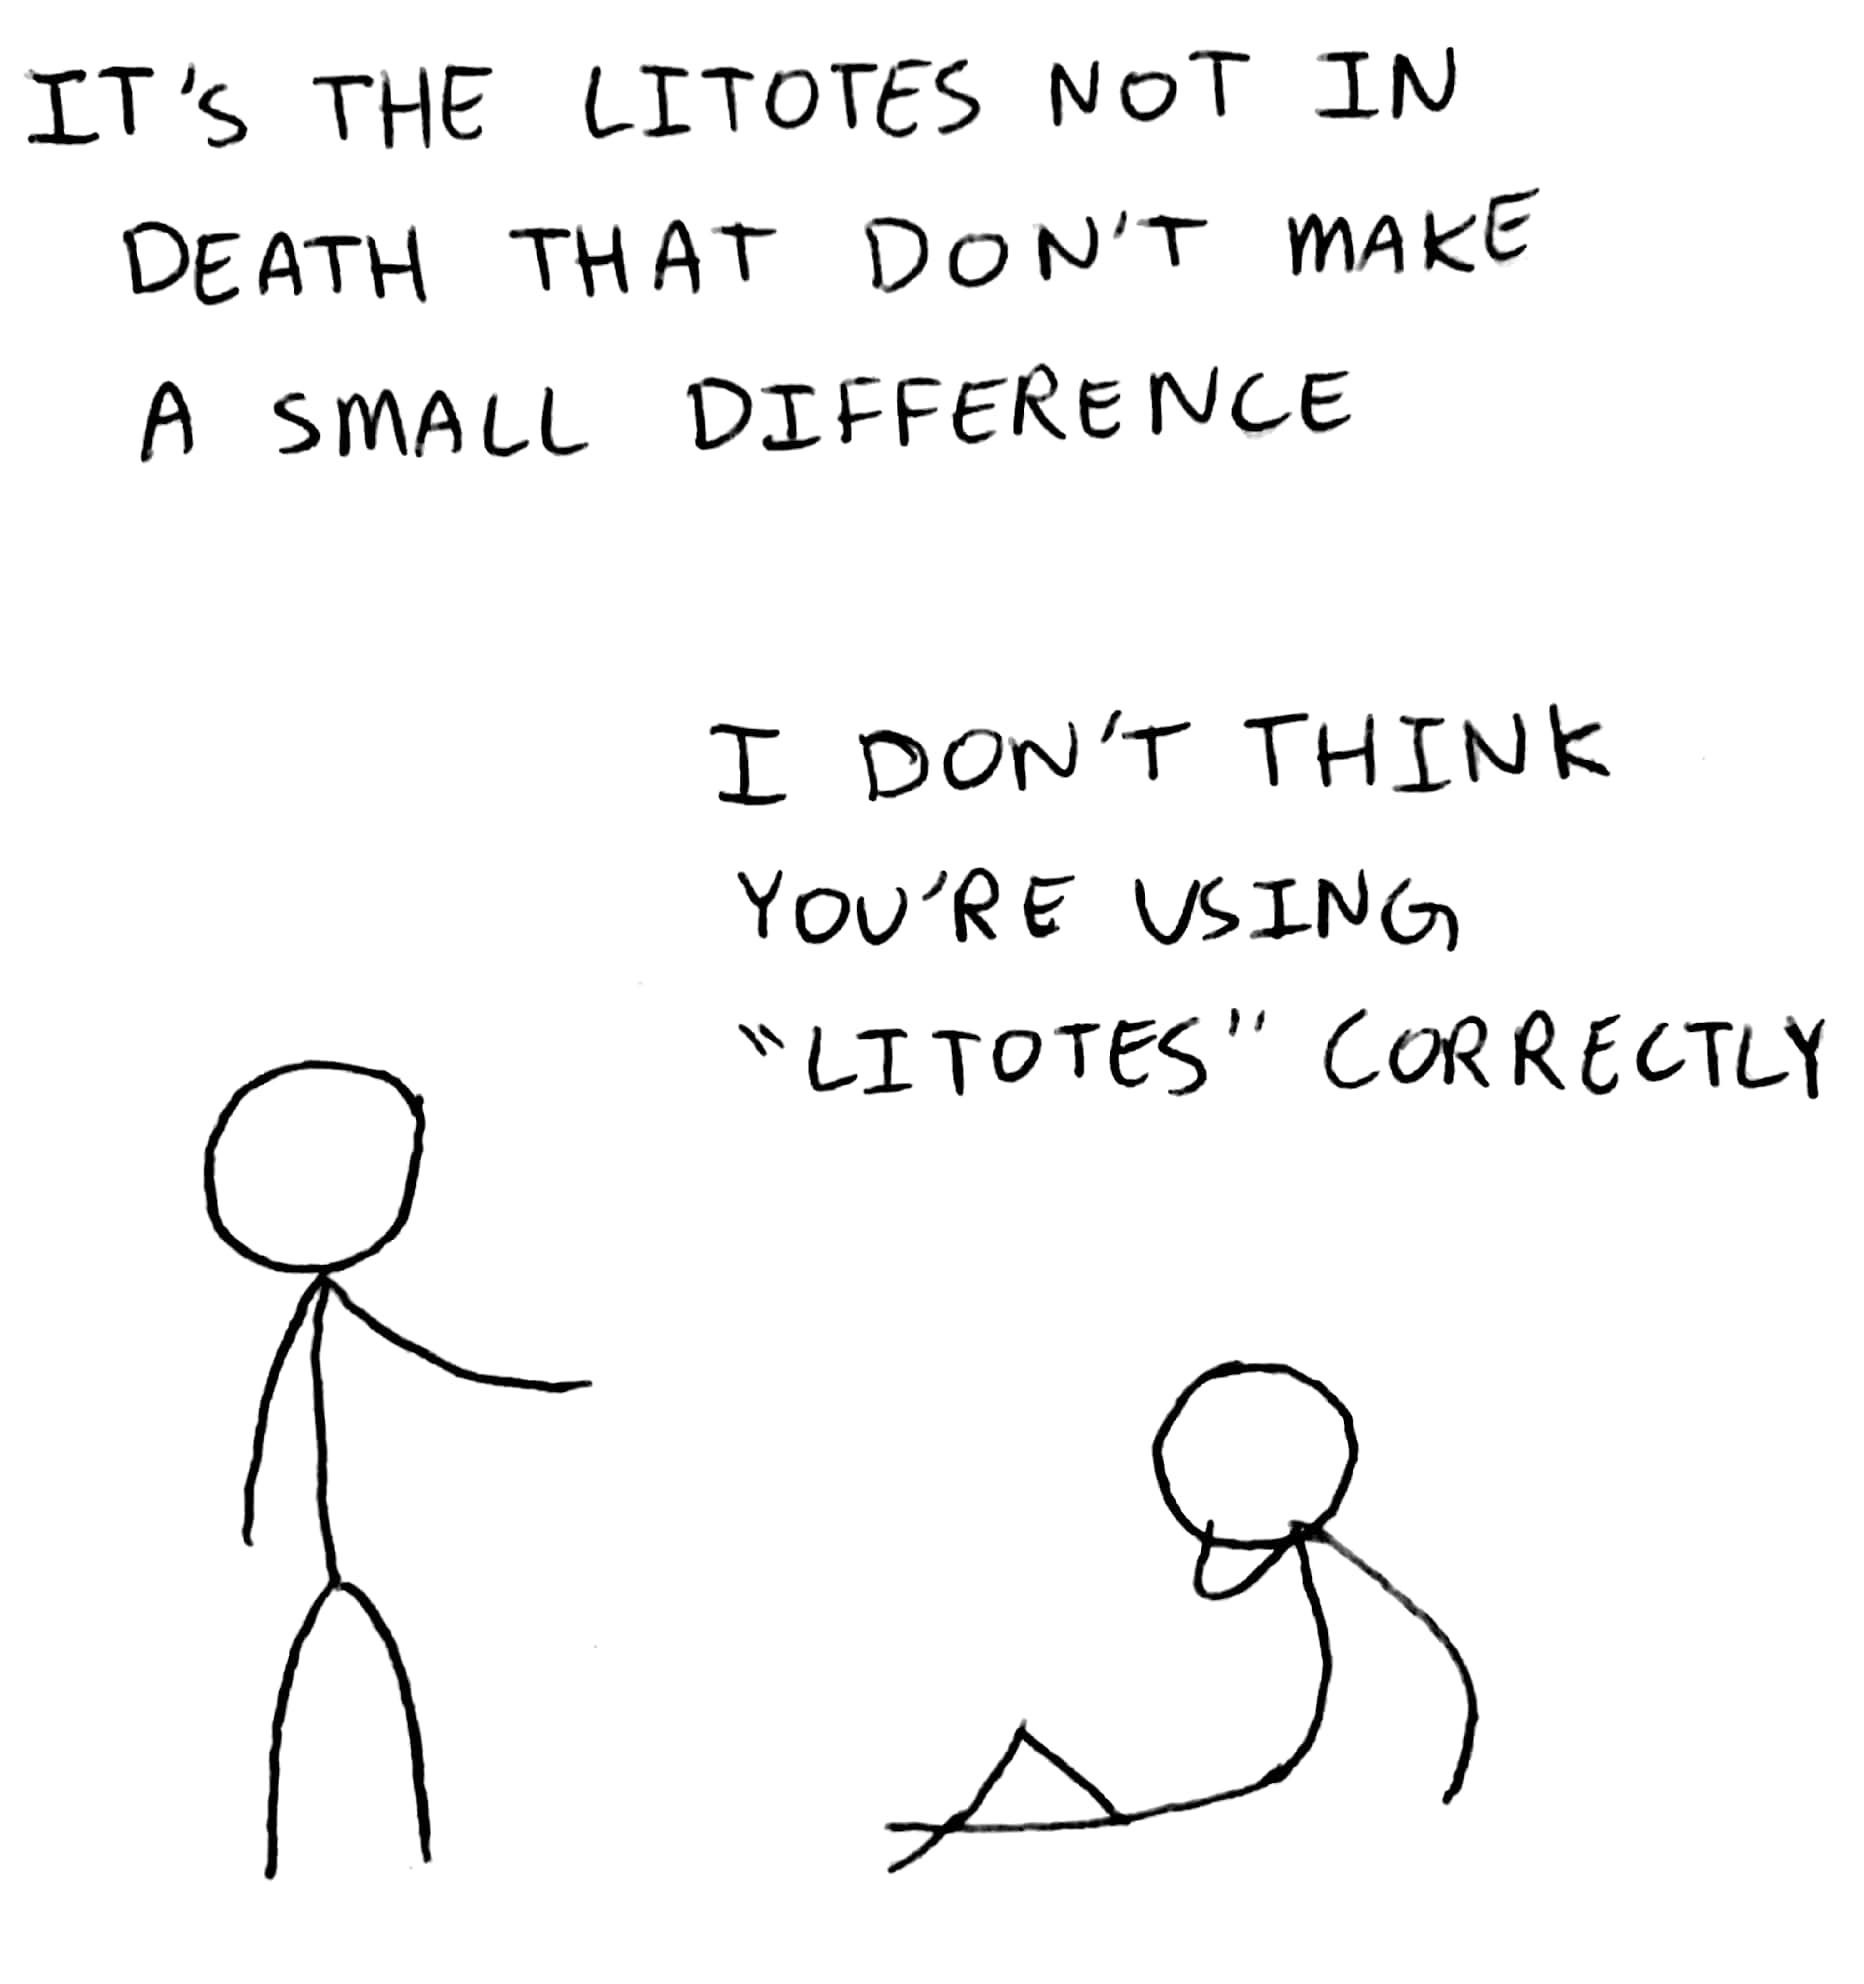 IT'S THE LITOTES NOT IN
DEATH THAT DON'T MAKE
A SMALL DIFFERENCE
I DON'T THINK
YOU'RE USING
"LITOTES" CORRECTLY